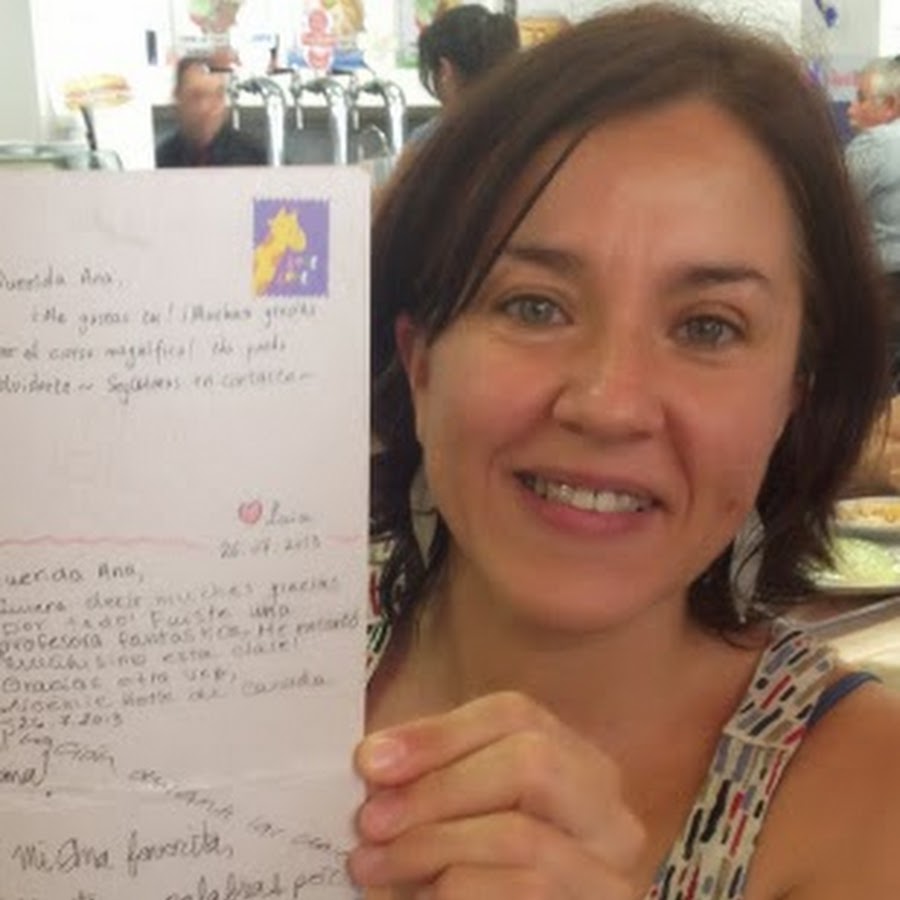 Querida Ana,
¡Me gustas tu! ¡Muchas gracias
por el curso magnífico! No puedo
olvidarte ~ Seguimos en contacto ~
Luia
26.07.2013
Querida Ana,
Quiero decir muchas gracias
por todo! Fuiste una
profesora fantastica. Me encantó
muchisimo esta clase!
Gracias otra vez,
de Canada
26.7.2013
Mi Ana favorita,
palabras